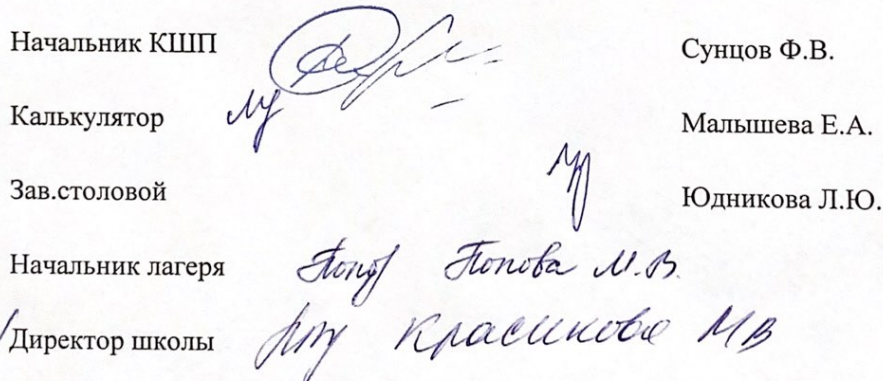 Начальник КШП Сунцов Ф.В.
Калькулятор Малышева Е.А.
Зав.столовой Юдникова Л.Ю.
Начальник лагеря Попова М.В.
Директор школы Красикова МВ